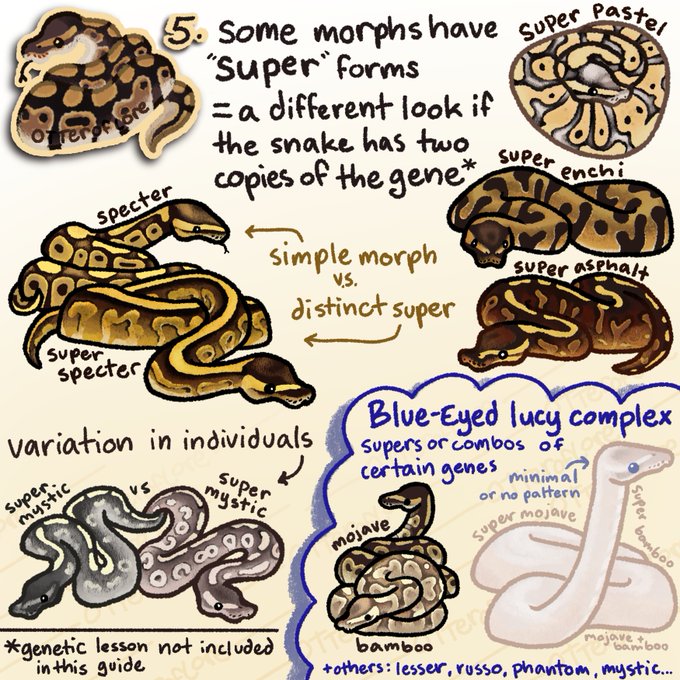 5. Some morphs have
"Super" forms
= a different look if
the snake has two
copies of the gene*
OTTEROFLORE
Super Pastel
super enchi
super asphalt
specter
simple morph
v.s.
distinct super
super
specter
variation in individuals
super
mystic
vs
super
mystic
*genetic lesson not included
in this guide
Blue-Eyed lucy complex
supers or combos of
certain genes
minimal
or no pattern
mojave
bamboo
super mojave
super bamboo
mojave +
bamboo
+others: lesser, russo, phantom, mystic...